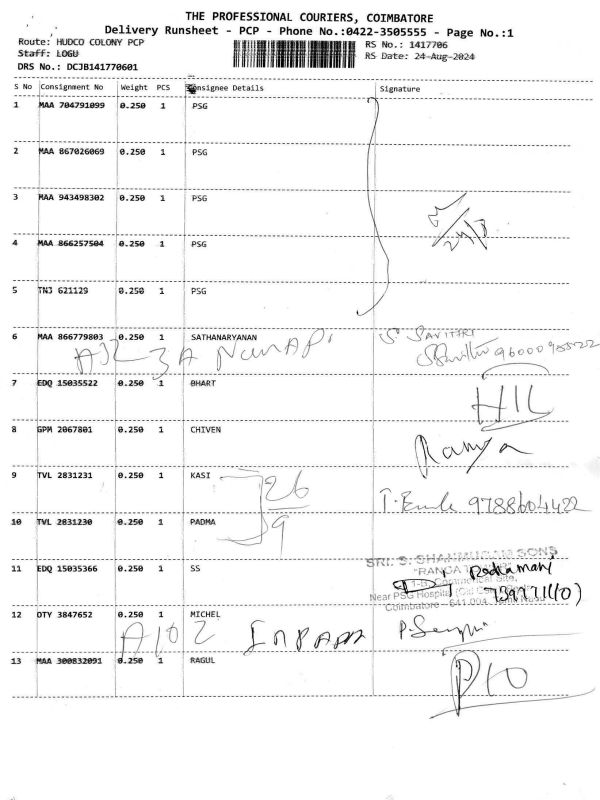 THE PROFESSIONAL COURIERS, COIMBATORE
Delivery Runsheet - PCP - Phone No.:0422-3505555 - Page No.:1
Route: HUDCO COLONY PCP
RS No.: 1417706
Staff: LOGU
RS Date: 24-Aug-2024
DRS No.: DCJB141770601
S No Consignment No Weight PCS Consignee Details Signature
1 MAA 704791099 0.250 1 PSG
2 MAA 867026069 0.250 1 PSG
3 MAA 943498302 0.250 1 PSG
24/8
4 MAA 866257504 0.250 1 PSG
5 TNJ 621129 0.250 1 PSG
6 MAA 866779803 0.250 1 SATHANARYANAN S. SAVITHRI
3A
7 EDQ 15035522 0.250 1 BHART
HIL
8 GPM 2067801 0.250 1 CHIVEN
Ramya
9 TVL 2831231 0.250 1 KASI
26
9
9788604422
10 TVL 2831230 0.250 1 PADMA
11 EDQ 15035366 0.250 1 SS
SRI. S. SHANMUGAM SONS
Near PSG Hospital
Coimbatore - 641 004
12 OTY 3847652 0.250 1 MICHEL
A102
13 MAA 300832091 0.250 1 RAGUL
P10